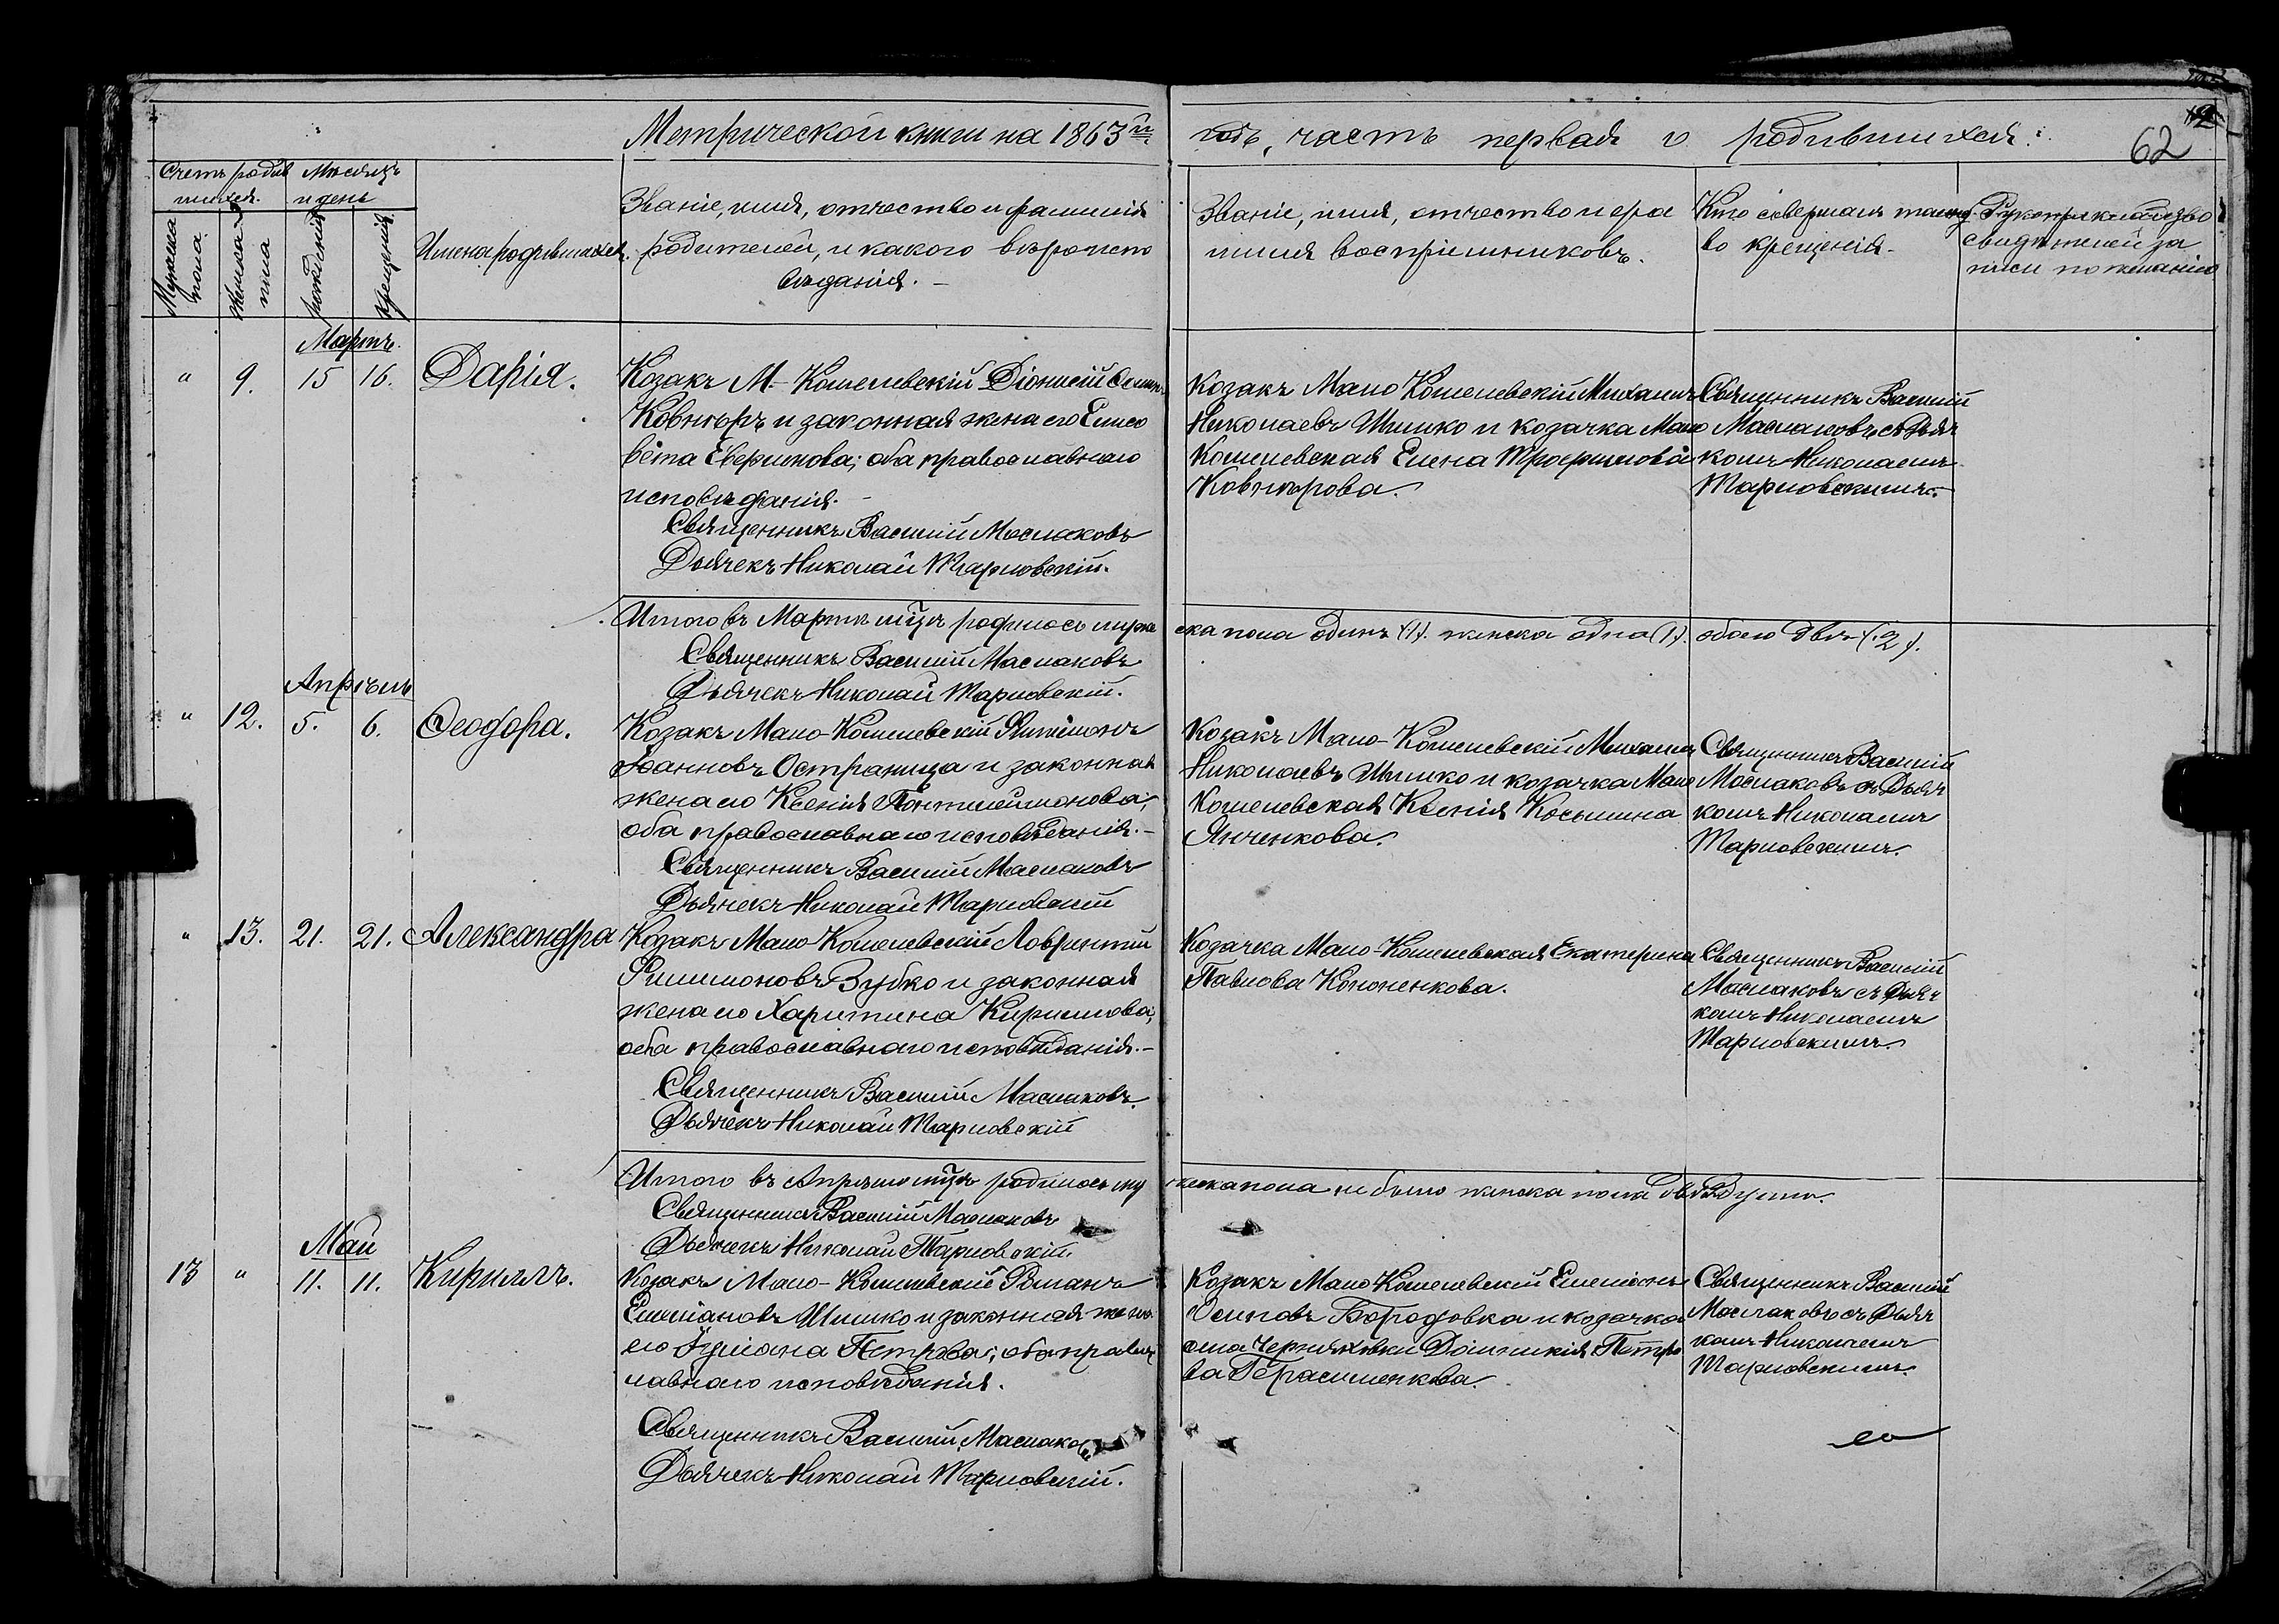 Метрической книги на 1863й годъ, часть первая о родившихся:
62
Счетъ родив
шихся.
Мѣсяцъ
и день
Мужеска
пола.
Женска
пола
рожденія
крещенія.
Имена родившихся.
Званіе, имя, отчество и фамилія
родителей, и какого вѣроиспо
вѣданія. –
Званіе, имя, отчество и фа
милія воспріемниковъ.
Кто совершалъ таинст
во крещенія.
Рукоприкладство
свидѣтелей за
писи по желанію
Мартъ.
" 9. 15 16. Дарія.
Козакъ М.- Кошелевскій Діонисій Осип.
Ковнѣръ и законная жена его Елисо
вета Евфимова; оба православнаго
исповѣданія. –
Священникъ Василій Маслаковъ
Дьячекъ Николай Тарновскій.
Козакъ Мало Кошелевскій Михаилъ
Николаевъ Шишко и козачка Мало
Кошелевская Елена Трофимова
Ковнѣрова.
Священникъ Василій
Маслаковъ съ Дьяч
комъ Николаемъ
Тарновскимъ.
Итого въ Мартѣ мцѣ родилось муже ска пола одинъ (1). женска одна (1). обоего двѣ (2).
Священникъ Василій Маслаковъ
Дьячекъ Николай Тарновскій.
Апрѣль
" 12. 5. 6. Ѳеодора.
Козакъ Мало-Кошелевскій Филимонъ
Іоанновъ Остраница и законная
жена его Ксенія Понтелеимонова;
оба православнаго исповѣданія. –
Священникъ Василій Маслаковъ
Дьячекъ Николай Тарновскій
Козакъ Мало-Кошелевскій Михаилъ
Николаевъ Шишко и козачка Мало
Кошелевская Ксенія Косьмина
Янченкова.
Священникъ Василій
Маслаковъ съ Дьяч
комъ Николаемъ
Тарновскимъ.
" 13. 21. 21. Александра
Козакъ Мало-Кошелевскій Лаврентій
Филимоновъ Зубко и законная
жена его Харитина Кириллова;
оба православнаго исповѣданія. –
Священникъ Василій Маслаковъ.
Дьячекъ Николай Тарновскій
Козачка Мало-Кошелевская Екатерина
Павлова Кононенкова.
Священникъ Василій
Маслаковъ съ Дьяч
комъ Николаемъ
Тарновскимъ.
Итого въ Апрѣлѣ мцѣ родилось му жеска пола не было женска пола двѣ души.
Священникъ Василій Маслаковъ
Дьячекъ Николай Тарновскій.
Май
13 " 11. 11. Кириллъ.
Козакъ Мало-Кошелевскій Романъ
Емеліановъ Шишко и законная жена
его Іуліана Петрова; оба правос
лавнаго исповѣданія.
Священникъ Василій Маслаковъ
Дьячекъ Николай Тарновскій.
Козакъ Мало Кошелевскій Емеліонъ
Осиповъ Бородовка и козачка
села Черняховки Домникія Петро
ва Герасименкова.
Священникъ Василій
Маслаковъ съ Дьяч
комъ Николаемъ
Тарновскимъ.